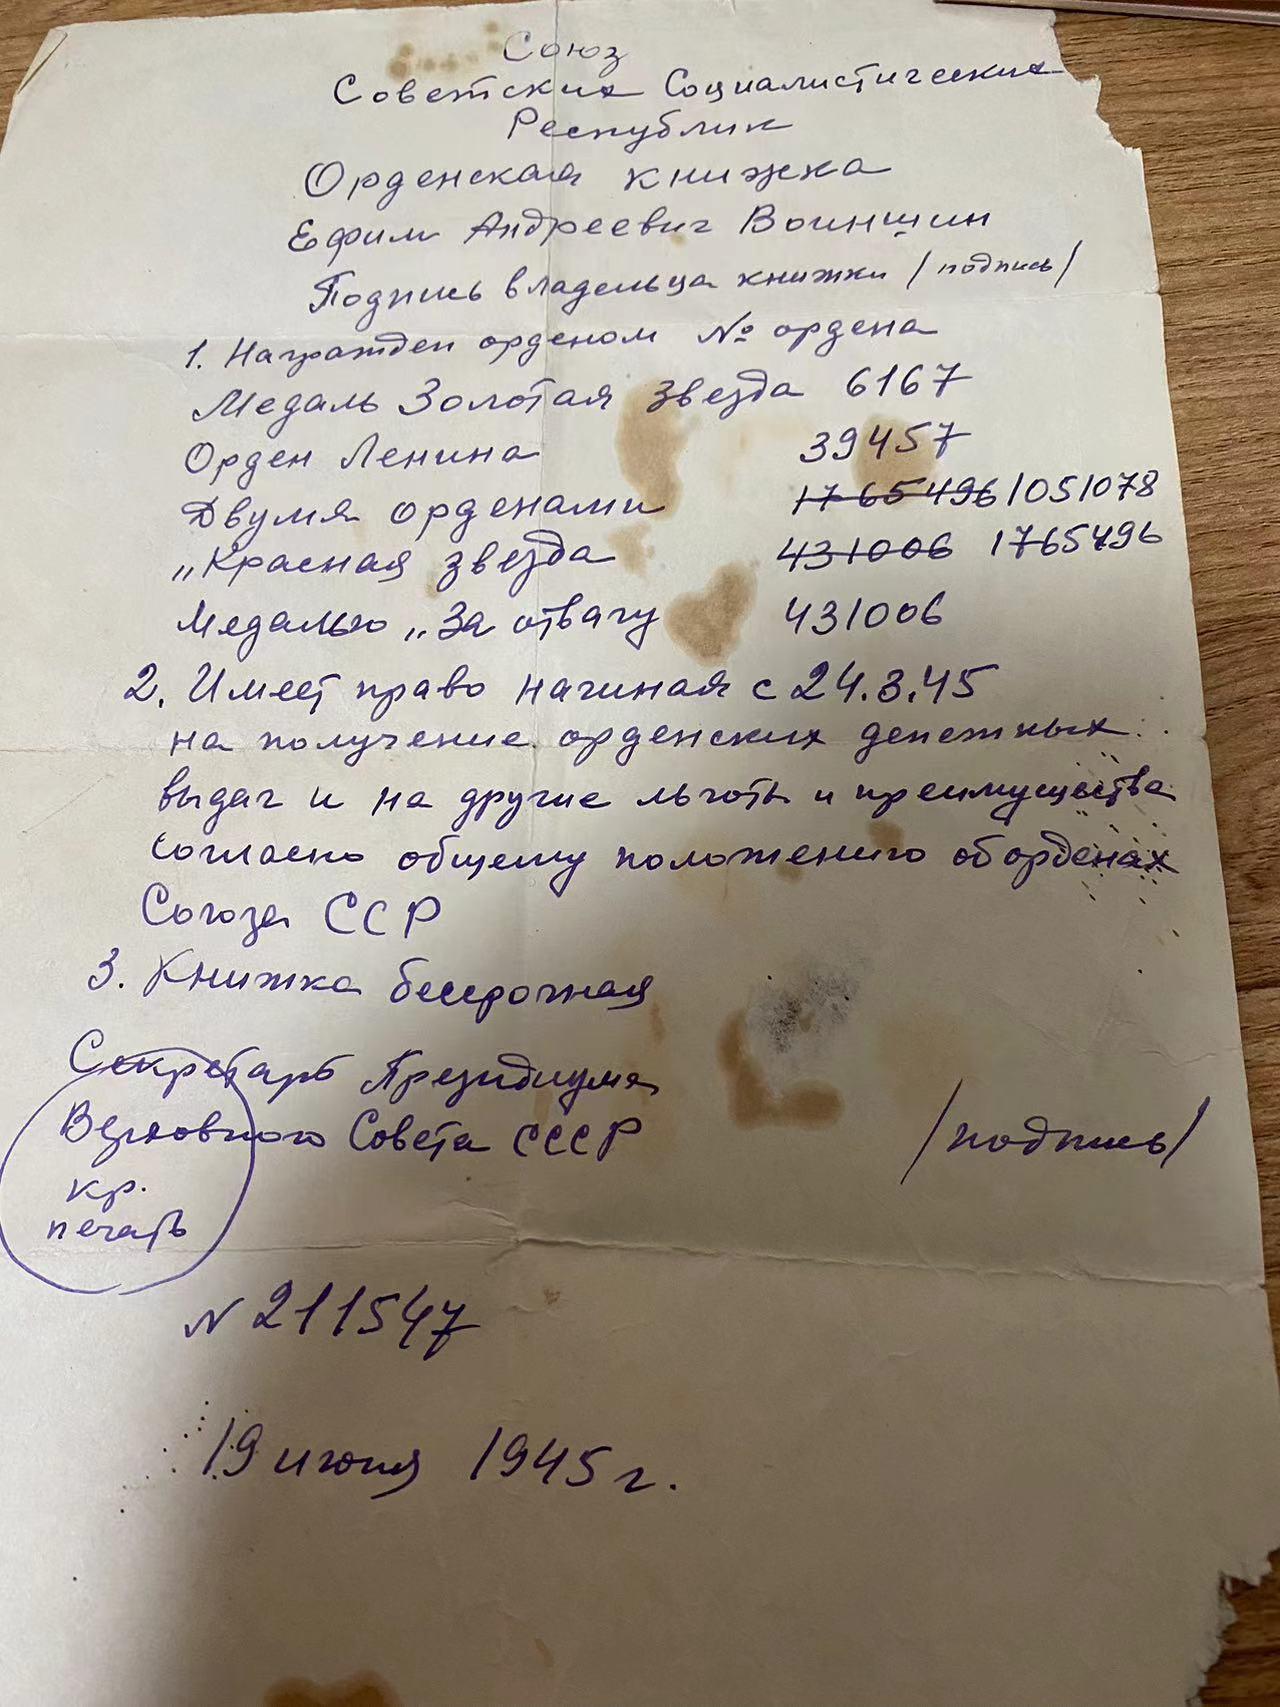 Союз
Советских Социалистических
Республик
Орденская книжка
Ефим Андреевич Воиншин
Подпись владельца книжки /подпись/
1. Награжден орденом № ордена
Медаль Золотая звезда 6167
Орден Ленина 39457
Двумя орденами 1765496 1051078
„Красная звезда 431006 1765496
Медалью „За отвагу 431006
2. Имеет право начиная с 24.3.45
на получение орденских денежных
выдач и на другие льготы и преимущества
согласно общему положению об орденах
Союза ССР
3. Книжка бессрочная
Секретарь Президиума
Верховного Совета СССР /подпись/
кр.
печать
N 211547
19 июня 1945 г.